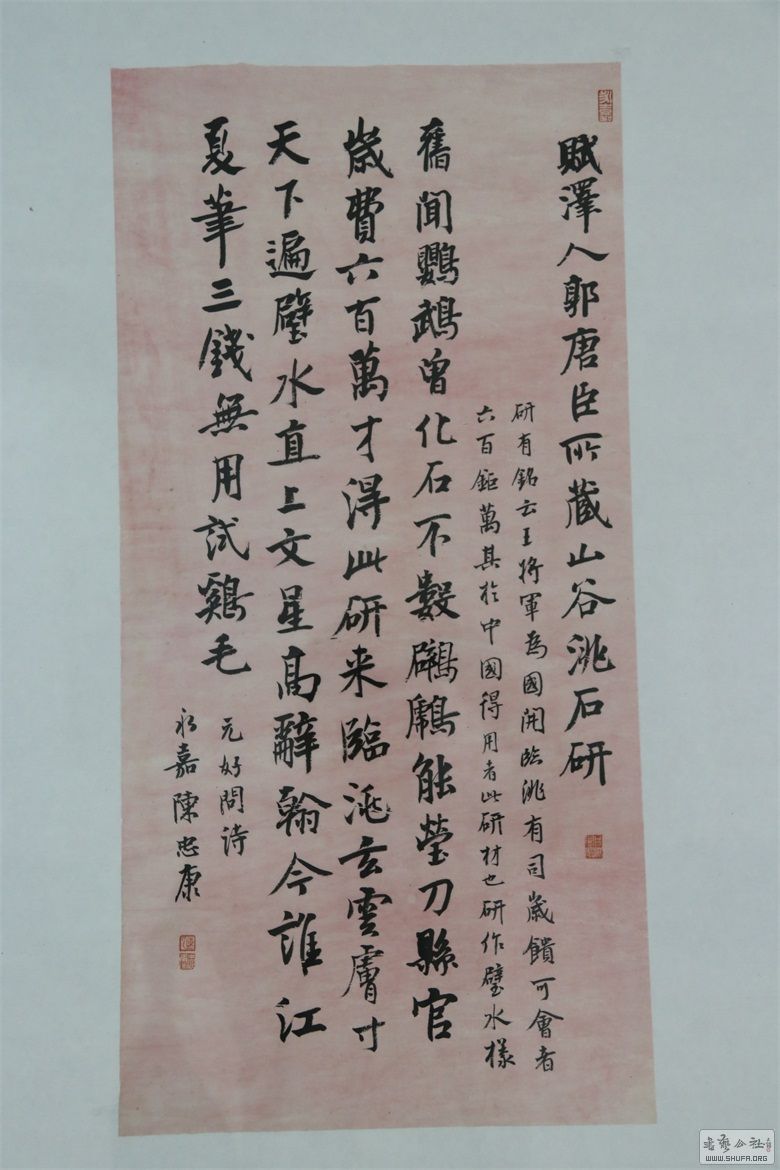 賦澤人郭唐臣所藏山谷洮石研
研有銘云王將軍為國開臨洮有司歲饋可會者
六百鉅萬其於中國得用者此研材也研作璧水樣
舊聞鸚鵡曾化石不數鸊鵜能瑩刀縣官
歲費六百萬才得此研來臨洮玄雲膚寸
天下遍璧水直上文星高辭翰今誰江
夏筆三錢無用試鷄毛
元好問詩
永嘉陳忠康
書藝公社
WWW.SHUFA.ORG